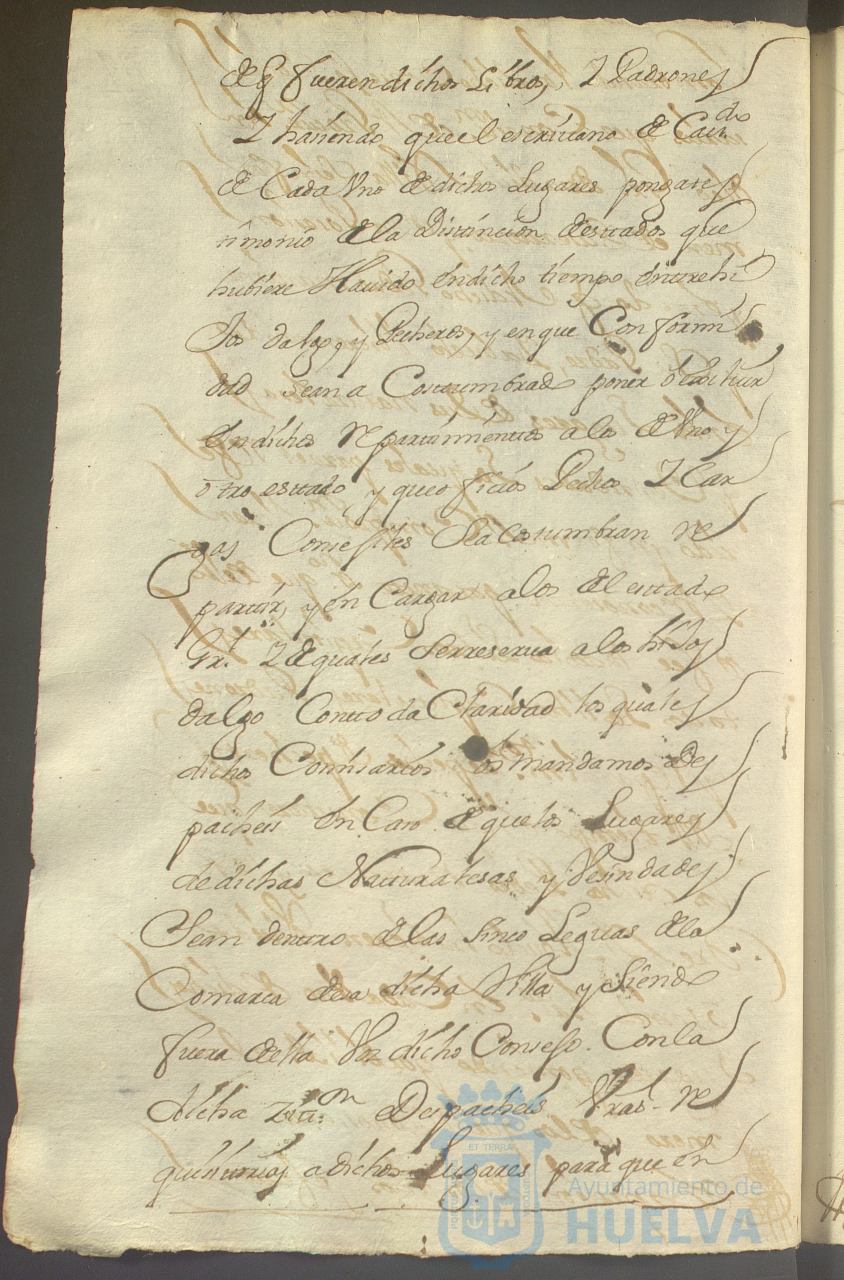 de q fueren dichos Libros, Y Padrones
Y haiiendo que el escriuano de Caudo
de Cada Vno de dichos Lugares ponga tes
timonio de la Distincion de estados que
hubiere Hauido en dicho tiempo entre hi
Jos dalgo, y Pecheros, y en que Conformi
dad sean a Costumbrado poner o escriuir
En dichos repartimientos a los de Vno y
otro estado, y que oficios Pechos Y Car
gas Consejiles Se a Costumbran re
partir, y en Cargar a los del estado
Grl. Y de quales Se rreserua a los hiJos
dalgo Con toda Claridad los quales
dichos Comisarios os mandamos Des
pacheis en Caso de que los Lugares
de dichas Naturalesas y Vesindades
Sean dentro de las sinco Leguas de la
Comarca de a dicha Villa y Siendo
fuera della Vos dicho Consejo Con la
dicha Zitton Despacheis Vras. re
quisitorias a dichos Lugares para que en
ET TERRAE
Ayuntamiento de
HUELVA